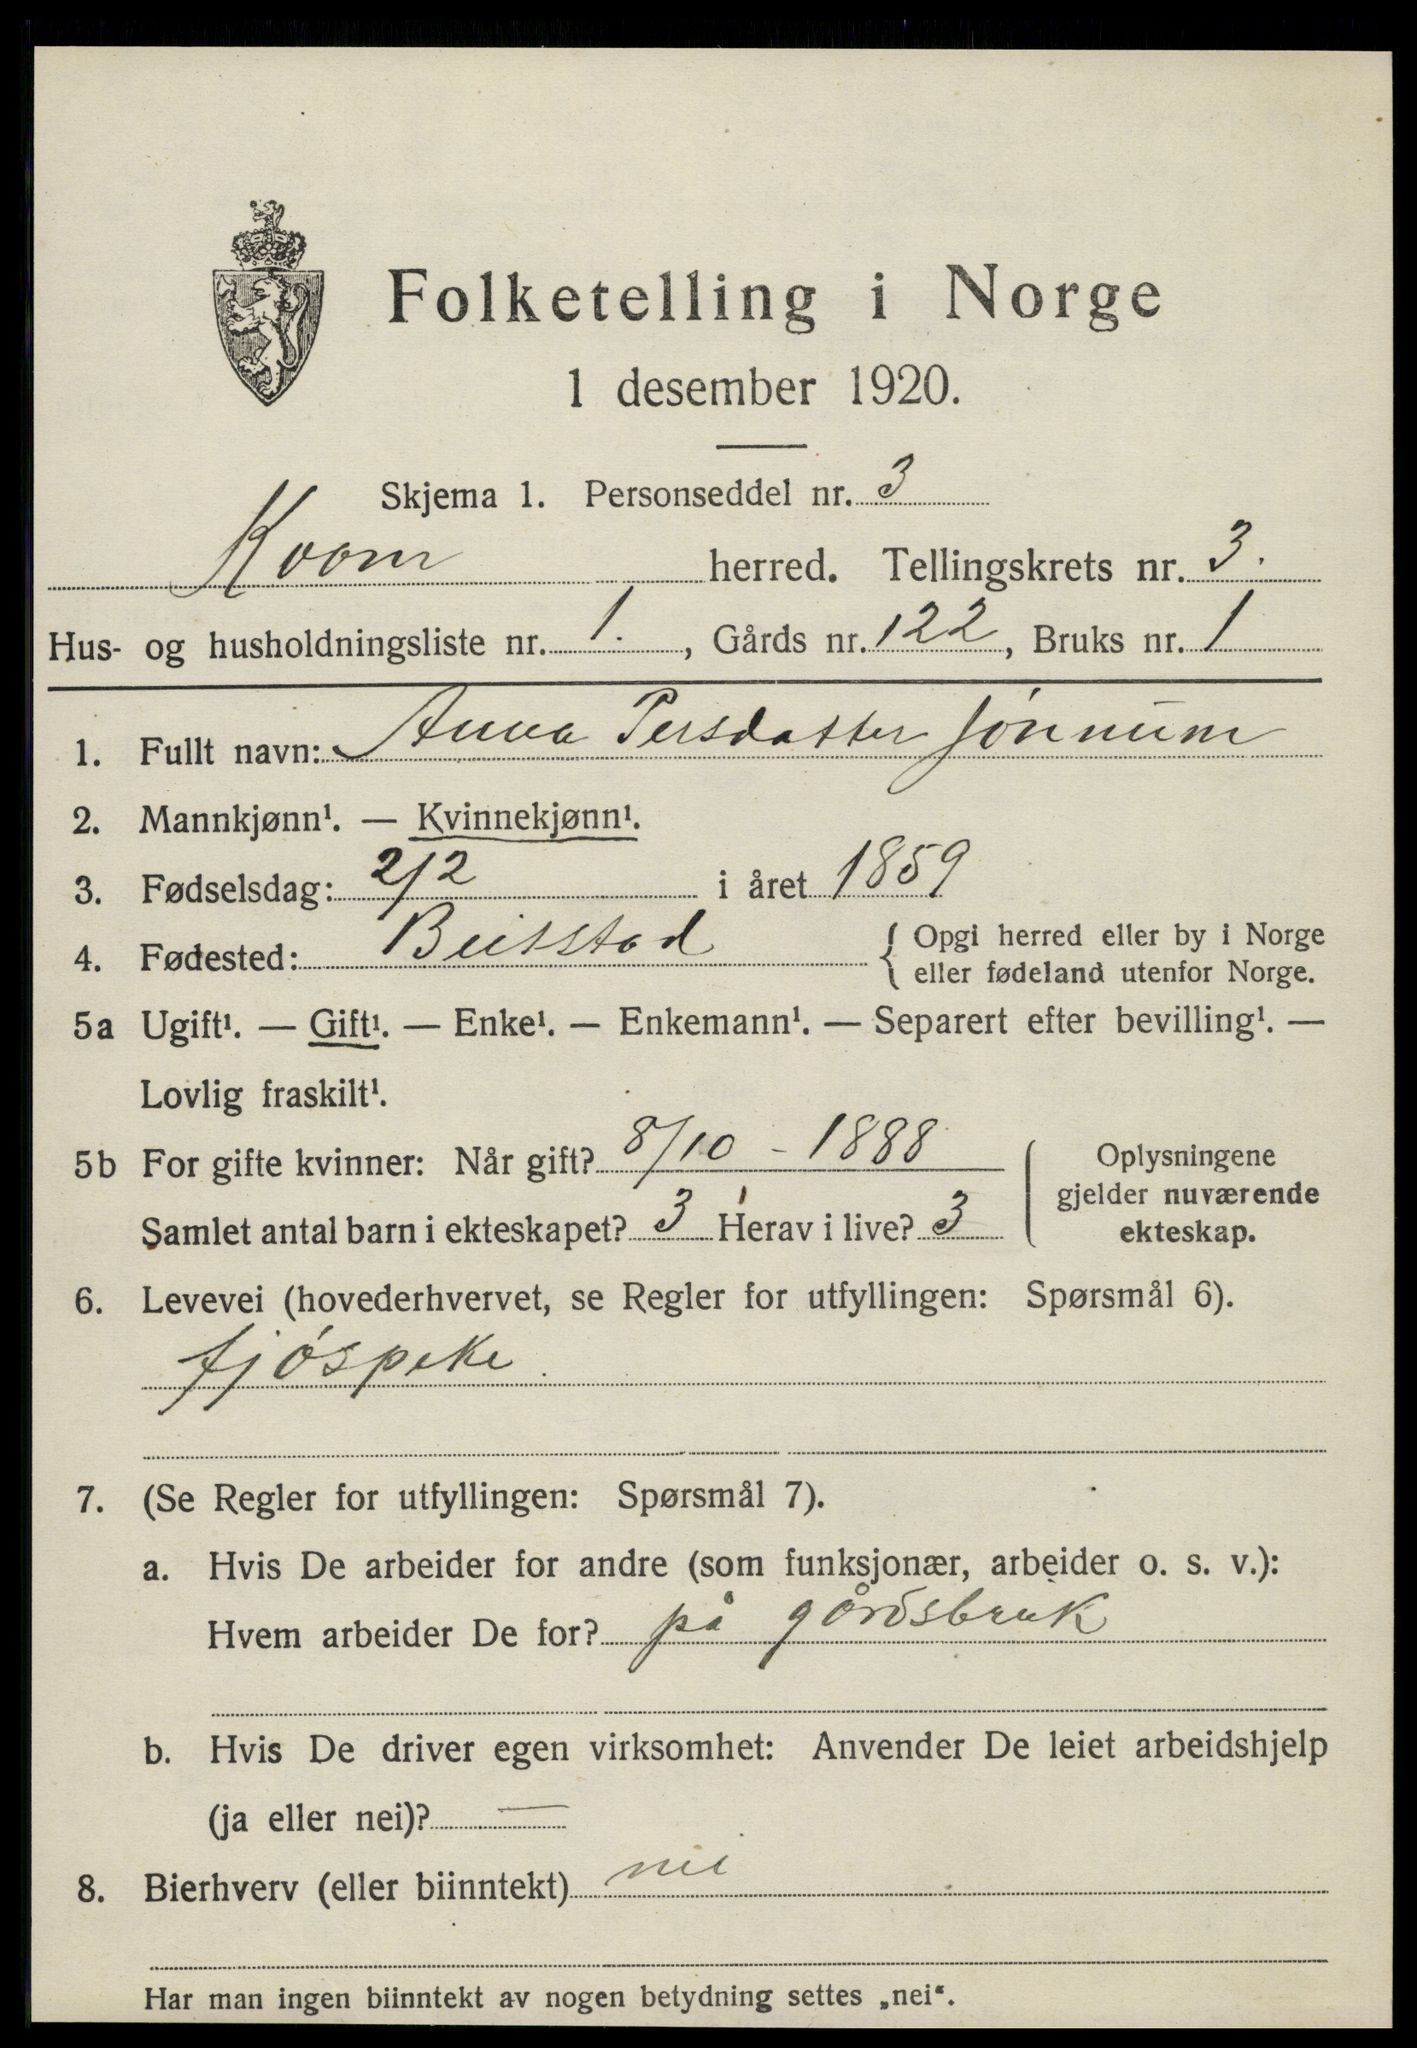 Folketelling i Norge
1 desember 1920.
Skjema 1. Personseddel nr. 3
Kvam herred. Tellingskrets nr. 3.
Hus- og husholdningsliste nr. 1., Gårds nr. 122, Bruks nr. 1
1. Fullt navn: Anna Persdatter Jönnum
2. Mannkjønn¹. — Kvinnekjønn¹.
3. Fødselsdag: 2/2 i året 1859
4. Fødested: Beitstad { Opgi herred eller by i Norge
eller fødeland utenfor Norge.
5a Ugift¹. — Gift¹. — Enke¹. — Enkemann¹. — Separert efter bevilling¹. —
Lovlig fraskilt¹.
5b For gifte kvinner: Når gift? 8/10 - 1888
Samlet antal barn i ekteskapet? 3 Herav i live? 3
Oplysningene
gjelder nuværende
ekteskap.
6. Levevei (hovederhvervet, se Regler for utfyllingen: Spørsmål 6).
fjóspike
7. (Se Regler for utfyllingen: Spørsmål 7).
a. Hvis De arbeider for andre (som funksjonær, arbeider o. s. v.):
Hvem arbeider De for? på gårdsbruk
b. Hvis De driver egen virksomhet: Anvender De leiet arbeidshjelp
(ja eller nei)? —
8. Bierhverv (eller biinntekt) nei
Har man ingen biinntekt av nogen betydning settes „nei“.